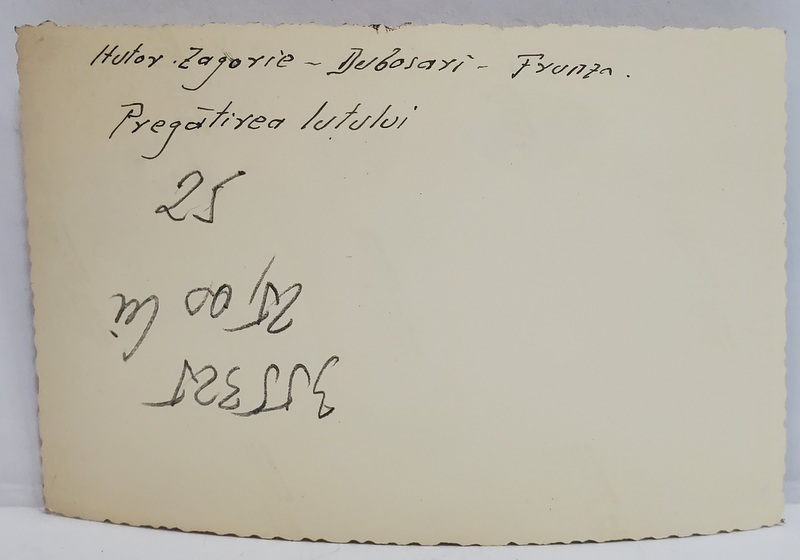 Hutor. Zagorie - Dubosari - Frunza.
Pregătirea lutului
25
25,00 lei
355325